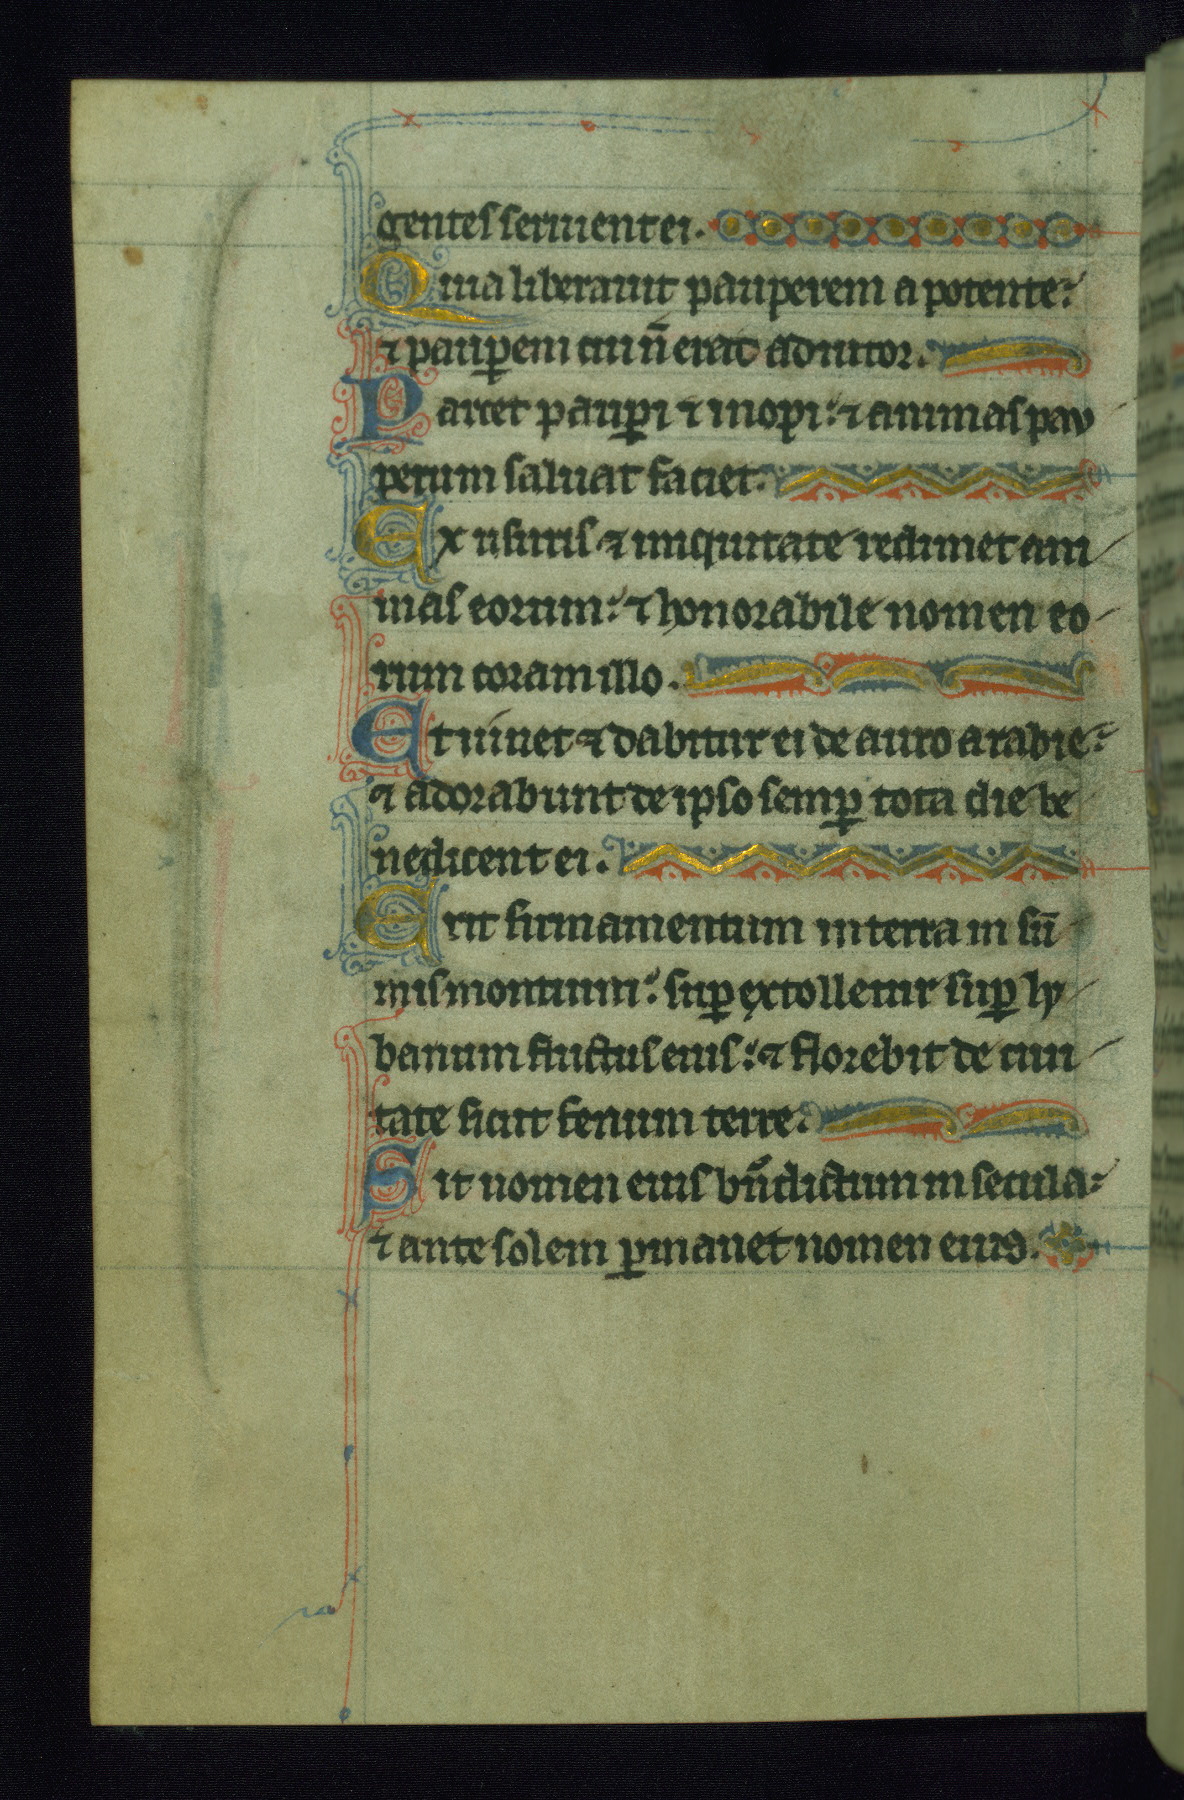 gentes seruient ei.
Quia liberauit pauperem a potente:
⁊ paup̲em cui n̄ erat adiutor.
Parcet paup̲i ⁊ inopi: ⁊ animas pau
perum saluas faciet.
Ex usuris ⁊ iniquitate redimet ani
mas eorum: ⁊ honorabile nomen eo
rum coram illo.
Et uiuet ⁊ dabitur ei de auro arabie:
⁊ adorabunt de ipso semp̲ tota die be
nedicent ei.
Erit firmamentum in terra in sū
mis montium: sup̲ extolletur sup̲ ly
banum fructus eius: ⁊ florebit de ciui
tate sicut fenum terre.
Sit nomen eius bn̄dictum in secula:
⁊ ante solem p̲manet nomen eiuꝰ.